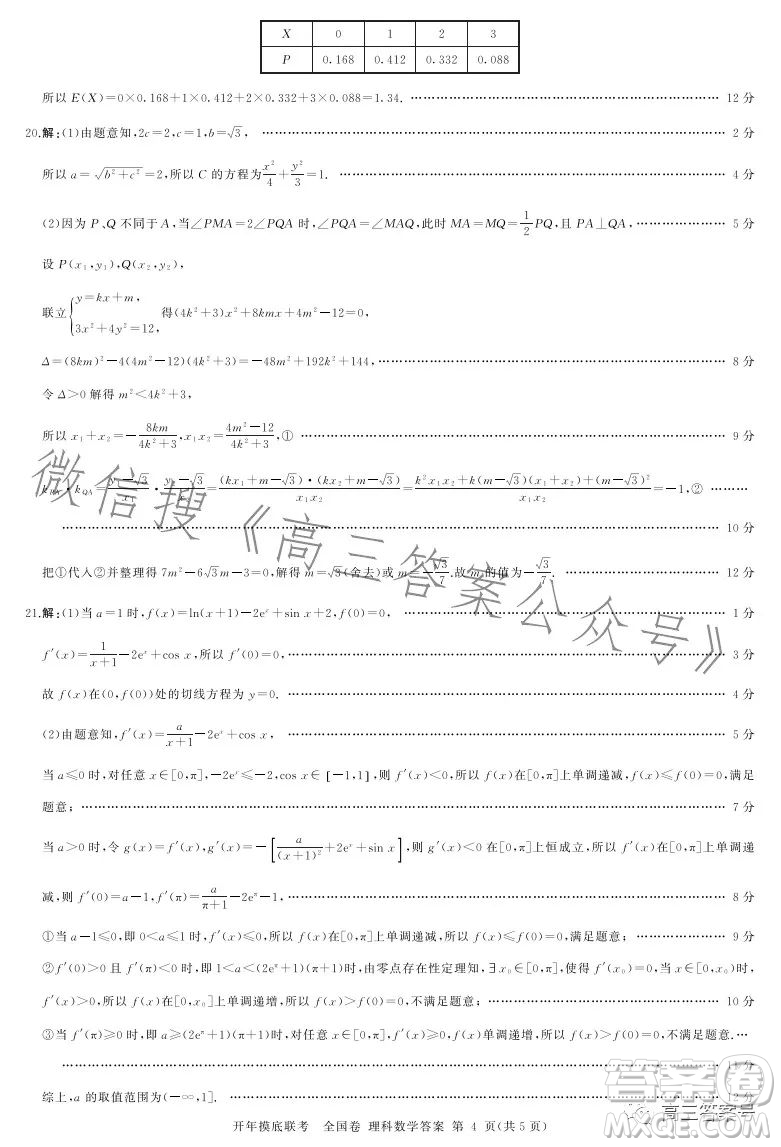 X 0 1 2 3
P 0.168 0.412 0.332 0.088
所以 E(X)=0×0.168+1×0.412+2×0.332+3×0.088=1.34. …… 12 分
20.解:(1)由题意知,2c=2,c=1,b=√3, …… 2 分
所以 a=√(b²+c²)=2,所以 C 的方程为x²/4+y²/3=1. …… 4 分
(2)因为 P、Q 不同于 A,当∠PMA=2∠PQA 时,∠PQA=∠MAQ,此时 MA=MQ=1/2PQ,且 PA⊥QA, …… 5 分
设 P(x₁,y₁),Q(x₂,y₂),
联立{y=kx+m, 3x²+4y²=12, 得(4k²+3)x²+8kmx+4m²−12=0,
Δ=(8km)²−4(4m²−12)(4k²+3)=−48m²+192k²+144, …… 8 分
令 Δ>0 解得 m²<4k²+3,
所以 x₁+x₂=−8km/(4k²+3),x₁x₂=(4m²−12)/(4k²+3),① …… 9 分
k_PA·k_QA=(y₁−√3)/x₁·(y₂−√3)/x₂=(kx₁+m−√3)·(kx₂+m−√3)/(x₁x₂)=(k²x₁x₂+k(m−√3)(x₁+x₂)+(m−√3)²)/(x₁x₂)=−1,② ……
…… 10 分
把①代入②并整理得 7m²−6√3m−3=0,解得 m=√3(舍去)或 m=−√3/7.故 m 的值为−√3/7. …… 12 分
21.解:(1)当 a=1 时,f(x)=ln(x+1)−2eˣ+sin x+2,f(0)=0, …… 1 分
f′(x)=1/(x+1)−2eˣ+cos x,所以 f′(0)=0, …… 3 分
故 f(x)在(0,f(0))处的切线方程为 y=0. …… 4 分
(2)由题意知,f′(x)=a/(x+1)−2eˣ+cos x, …… 5 分
当 a≤0 时,对任意 x∈[0,π],−2eˣ≤−2,cos x∈[−1,1],则 f′(x)<0,所以 f(x)在[0,π]上单调递减,f(x)≤f(0)=0,满足
题意; …… 7 分
当 a>0 时,令 g(x)=f′(x),g′(x)=−[a/(x+1)²+2eˣ+sin x],则 g′(x)<0 在[0,π]上恒成立,所以 f′(x)在[0,π]上单调递
减,则 f′(0)=a−1,f′(π)=a/(π+1)−2e^π−1, …… 8 分
①当 a−1≤0,即 0<a≤1 时,f′(x)≤0,所以 f(x)在[0,π]上单调递减,所以 f(x)≤f(0)=0,满足题意; …… 9 分
②f′(0)>0 且 f′(π)<0 时,即 1<a<(2e^π+1)(π+1)时,由零点存在性定理知,∃x₀∈[0,π],使得 f′(x₀)=0,当 x∈[0,x₀)时,
f′(x)>0,所以 f(x)在[0,x₀]上单调递增,所以 f(x)>f(0)=0,不满足题意; …… 10 分
③当 f′(π)≥0 时,即 a≥(2e^π+1)(π+1)时,对任意 x∈[0,π],f′(x)≥0,f(x)单调递增,所以 f(x)>f(0)=0,不满足题意. …
…… 11 分
综上,a 的取值范围为(−∞,1]. …… 12 分
开年摸底联考 全国卷 理科数学答案 第 4 页(共 5 页)
微信搜《高三答案公众号》
答案圈
MXQE.COM
高三答案号